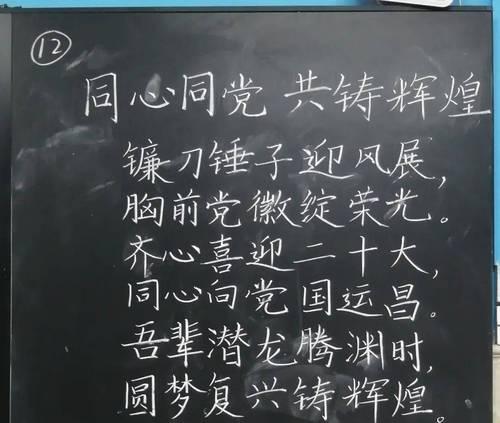 ⑫
同心同党 共铸辉煌
镰刀锤子迎风展，
胸前党徽绽荣光。
齐心喜迎二十大，
同心向党国运昌。
吾辈潜龙腾渊时，
圆梦复兴铸辉煌。